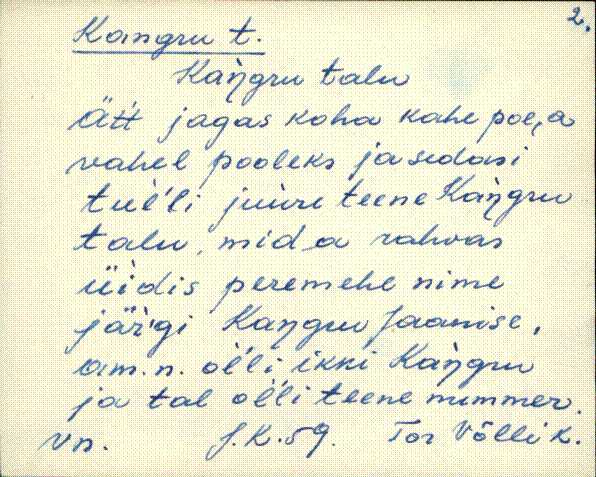 2.
Kangru t.
Kàŋgru talu
ätt jagas koha kahe poe,a
vahel pooleks ja sedasi
tuĺĺi juure teene Kàŋgru
talu, mid,a rahvas
üìdis peremehe nime
järgi Kaŋgru Jaanise,
am.n. oĺĺi ikki Kàŋgru
ja tal oĺĺi teene nummer.
vn. J.K.59. Tor Võllik.